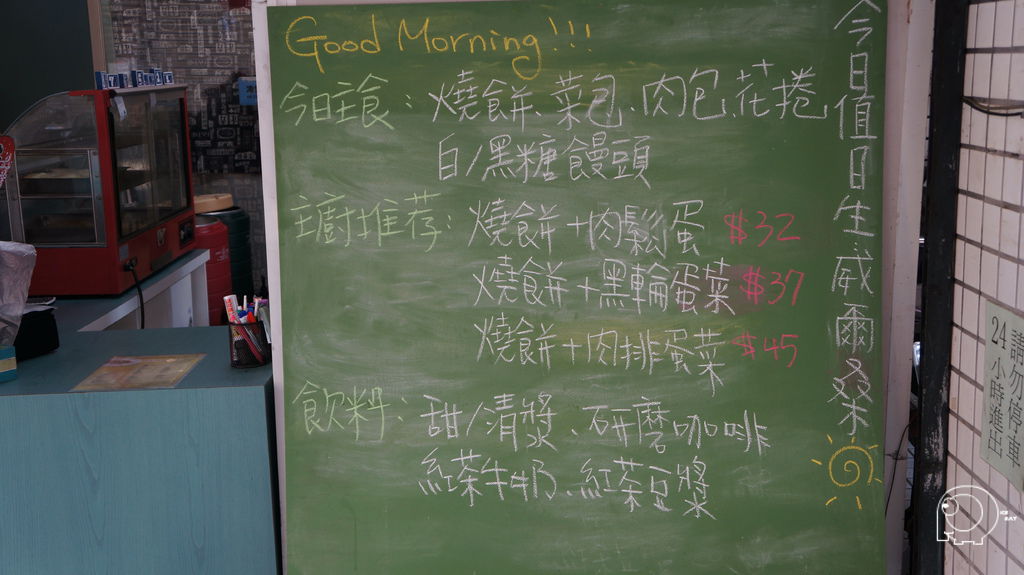 Good Morning!!!
今日主食：燒餅、菜包、肉包、花捲
白/黑糖饅頭
主廚推荐：燒餅+肉鬆蛋 $32
燒餅+黑輪蛋菜 $37
燒餅+肉排蛋菜 $45
飲料：甜/清漿、研磨咖啡
紅茶牛奶、紅茶豆漿
今日值日生威爾桑
請勿停車
24小時進出